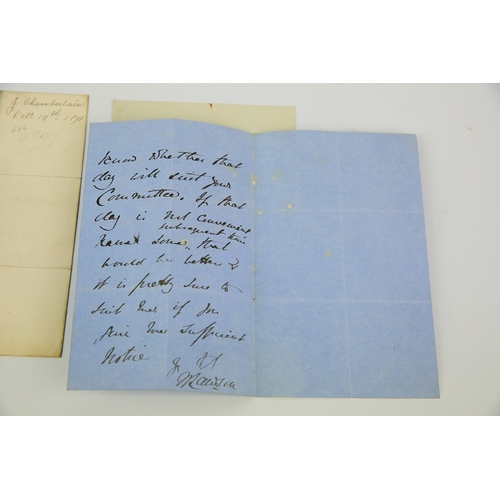 J Chamberlain
Octr 19th
know whether that
day will suit your
Committee. If that
day is not convenient
subsequent time
name some that
would be better &
it is pretty sure to
suit me if you
give me sufficient
Notice